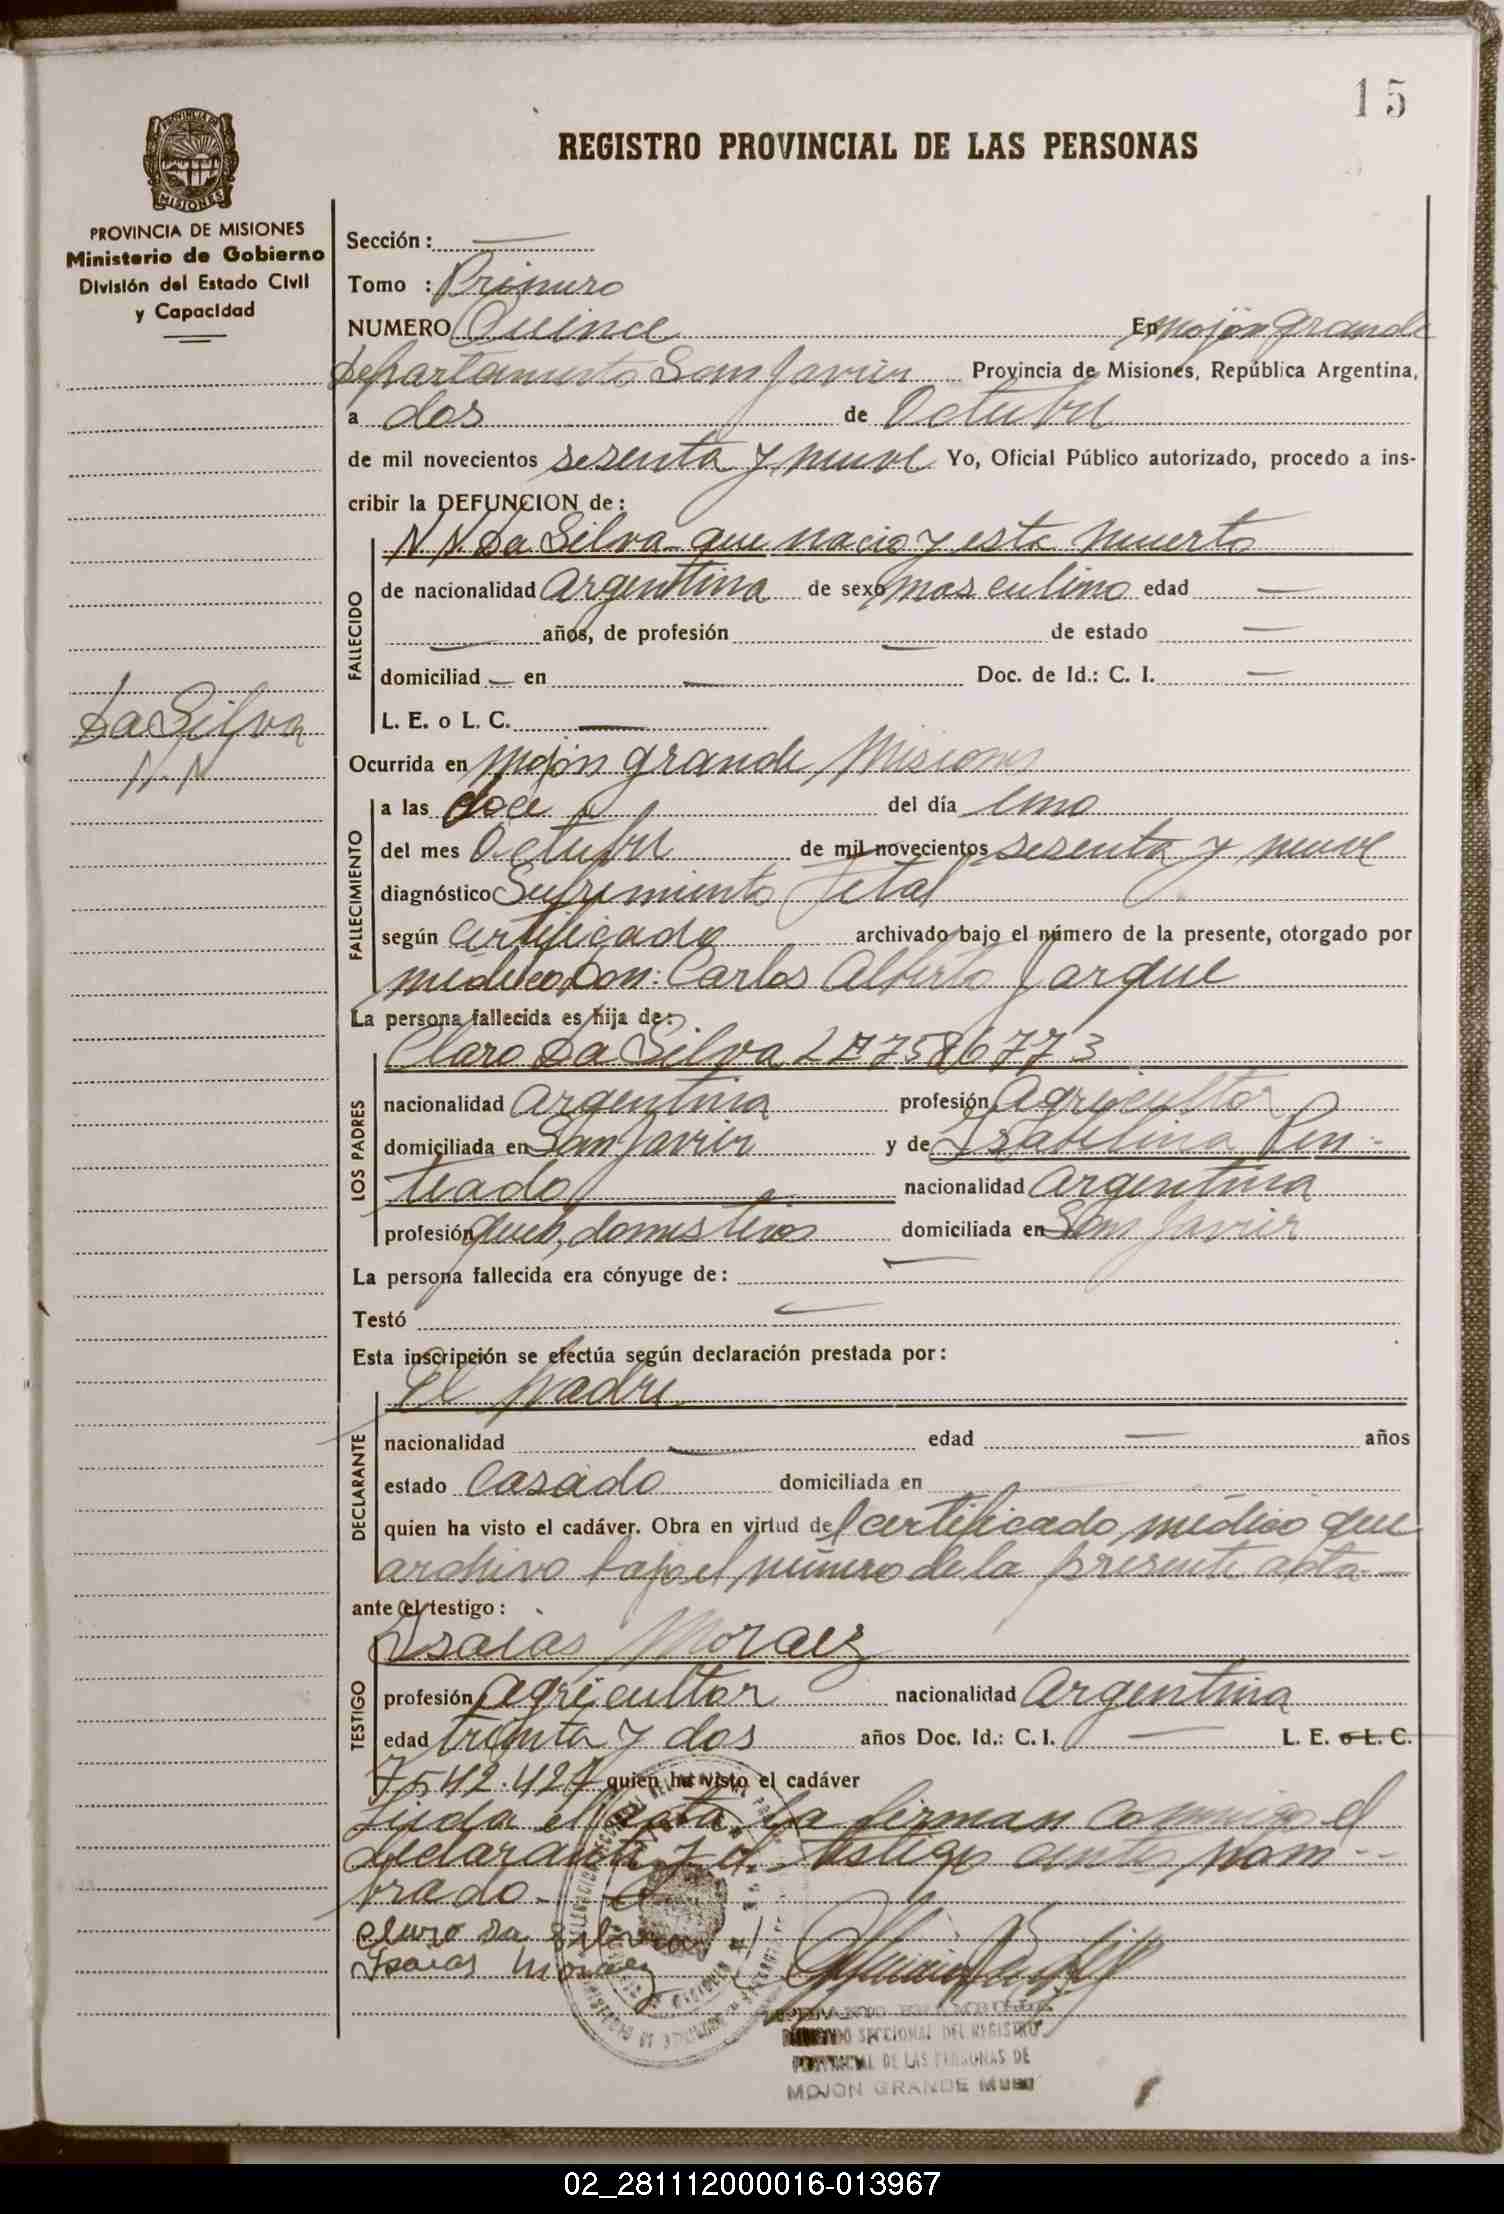 15
REGISTRO PROVINCIAL DE LAS PERSONAS
PROVINCIA DE MISIONES
PROVINCIA DE MISIONES
Ministerio de Gobierno
División del Estado Civil
y Capacidad
Da Silva
N. N
Sección: —
Tomo : Primero
NUMERO Quince En Mojón grande
departamento San Javier Provincia de Misiones, República Argentina,
a dos de Octubre
de mil novecientos sesenta y nueve Yo, Oficial Público autorizado, procedo a ins-
cribir la DEFUNCION de:
FALLECIDO
N. N. Da Silva que nacio y esta muerto
de nacionalidad argentina de sexo masculino edad —
— años, de profesión — de estado —
domiciliad — en — Doc. de Id.: C. I. —
L. E. o L. C. —
Ocurrida en Mojón grande Misiones
FALLECIMIENTO
a las doce del día uno
del mes Octubre de mil novecientos sesenta y nueve
diagnóstico Sufrimiento Fetal
según certificado archivado bajo el número de la presente, otorgado por
médico Don: Carlos Alberto Jarque
La persona fallecida es hija de:
LOS PADRES
Claro Da Silva L E 7586773
nacionalidad argentina profesión Agricultor
domiciliada en San Javier y de Isabelina Pen-
teado nacionalidad argentina
profesión queh. domesticos domiciliada en San Javier
La persona fallecida era cónyuge de: —
Testó —
Esta inscripción se efectúa según declaración prestada por:
DECLARANTE
El padre
nacionalidad — edad — años
estado Casado domiciliada en
quien ha visto el cadáver. Obra en virtud del certificado médico que
archivo bajo el número de la presente acta
ante el testigo:
TESTIGO
Isaias Moraez
profesión agricultor nacionalidad argentina
edad trinta y dos años Doc. Id.: C. I. — L. E. o L. C.
7542.427 quien ha visto el cadáver
Lieda el acta, la firman conmigo el
declarante y el testigo antes nom--
brado.
claro da Silva
Isaias Moraez
SECCIONAL DEL REGISTRO
PROVINCIAL DE LAS PERSONAS DE
MOJON GRANDE
02_281112000016-013967